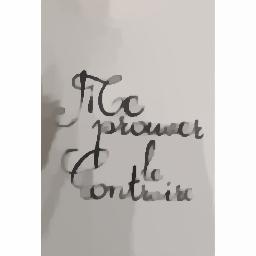 Me
prouver
le
Contraire